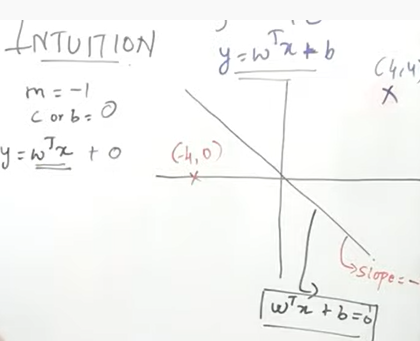 INTUITION
y = wᵀx + b
(4,4
×
m = -1
c or b = 0
y = wᵀx + 0
(-4,0)
×
slope = -
wᵀx + b = 0